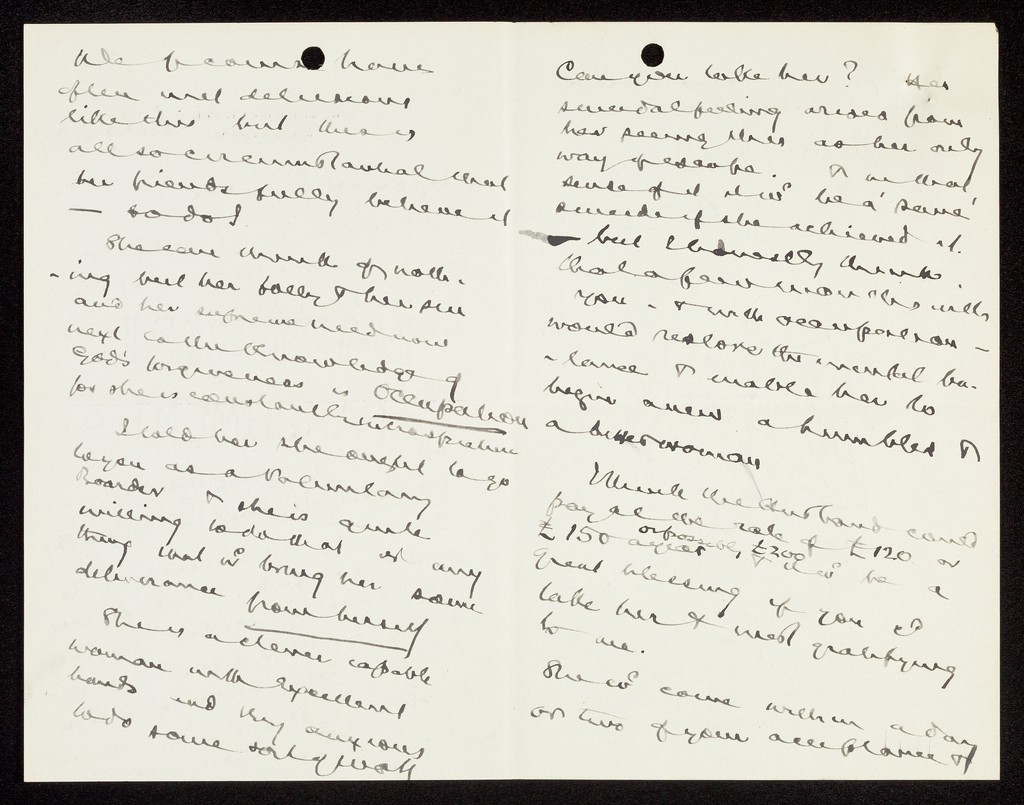 We of course have
often met delusions
like this but this is
all so circumstantial that
her friends fully believe it
— so do I
She can think of noth-
-ing but her folly & her sin
and her supreme need now
next to the knowledge of
God's forgiveness is Occupation
for she is constantly introspective
I told her she ought to go
to you as a Voluntary
Boarder & she is quite
willing to do that or any
thing that wd bring her some
deliverance from herself
She is a clever capable
woman with excellent
hands and very anxious
to do some sort of work
Can you take her? Her
suicidal feeling arises from
her seeing this as her only
way of escape. & in that
sense of it it wd be a 'sane'
suicide if she achieved it.
— but I honestly think
that a few months with
you - & with occupation —
would restore the mental ba-
-lance & enable her to
begin anew a humbled &
a better woman
I think the husband could
pay at the rate of £120 or
£150 a year or possible, £200 & it wd be a
great blessing if you cd
take her & most gratifying
to me.
She wd come within a day
or two of your acceptance &